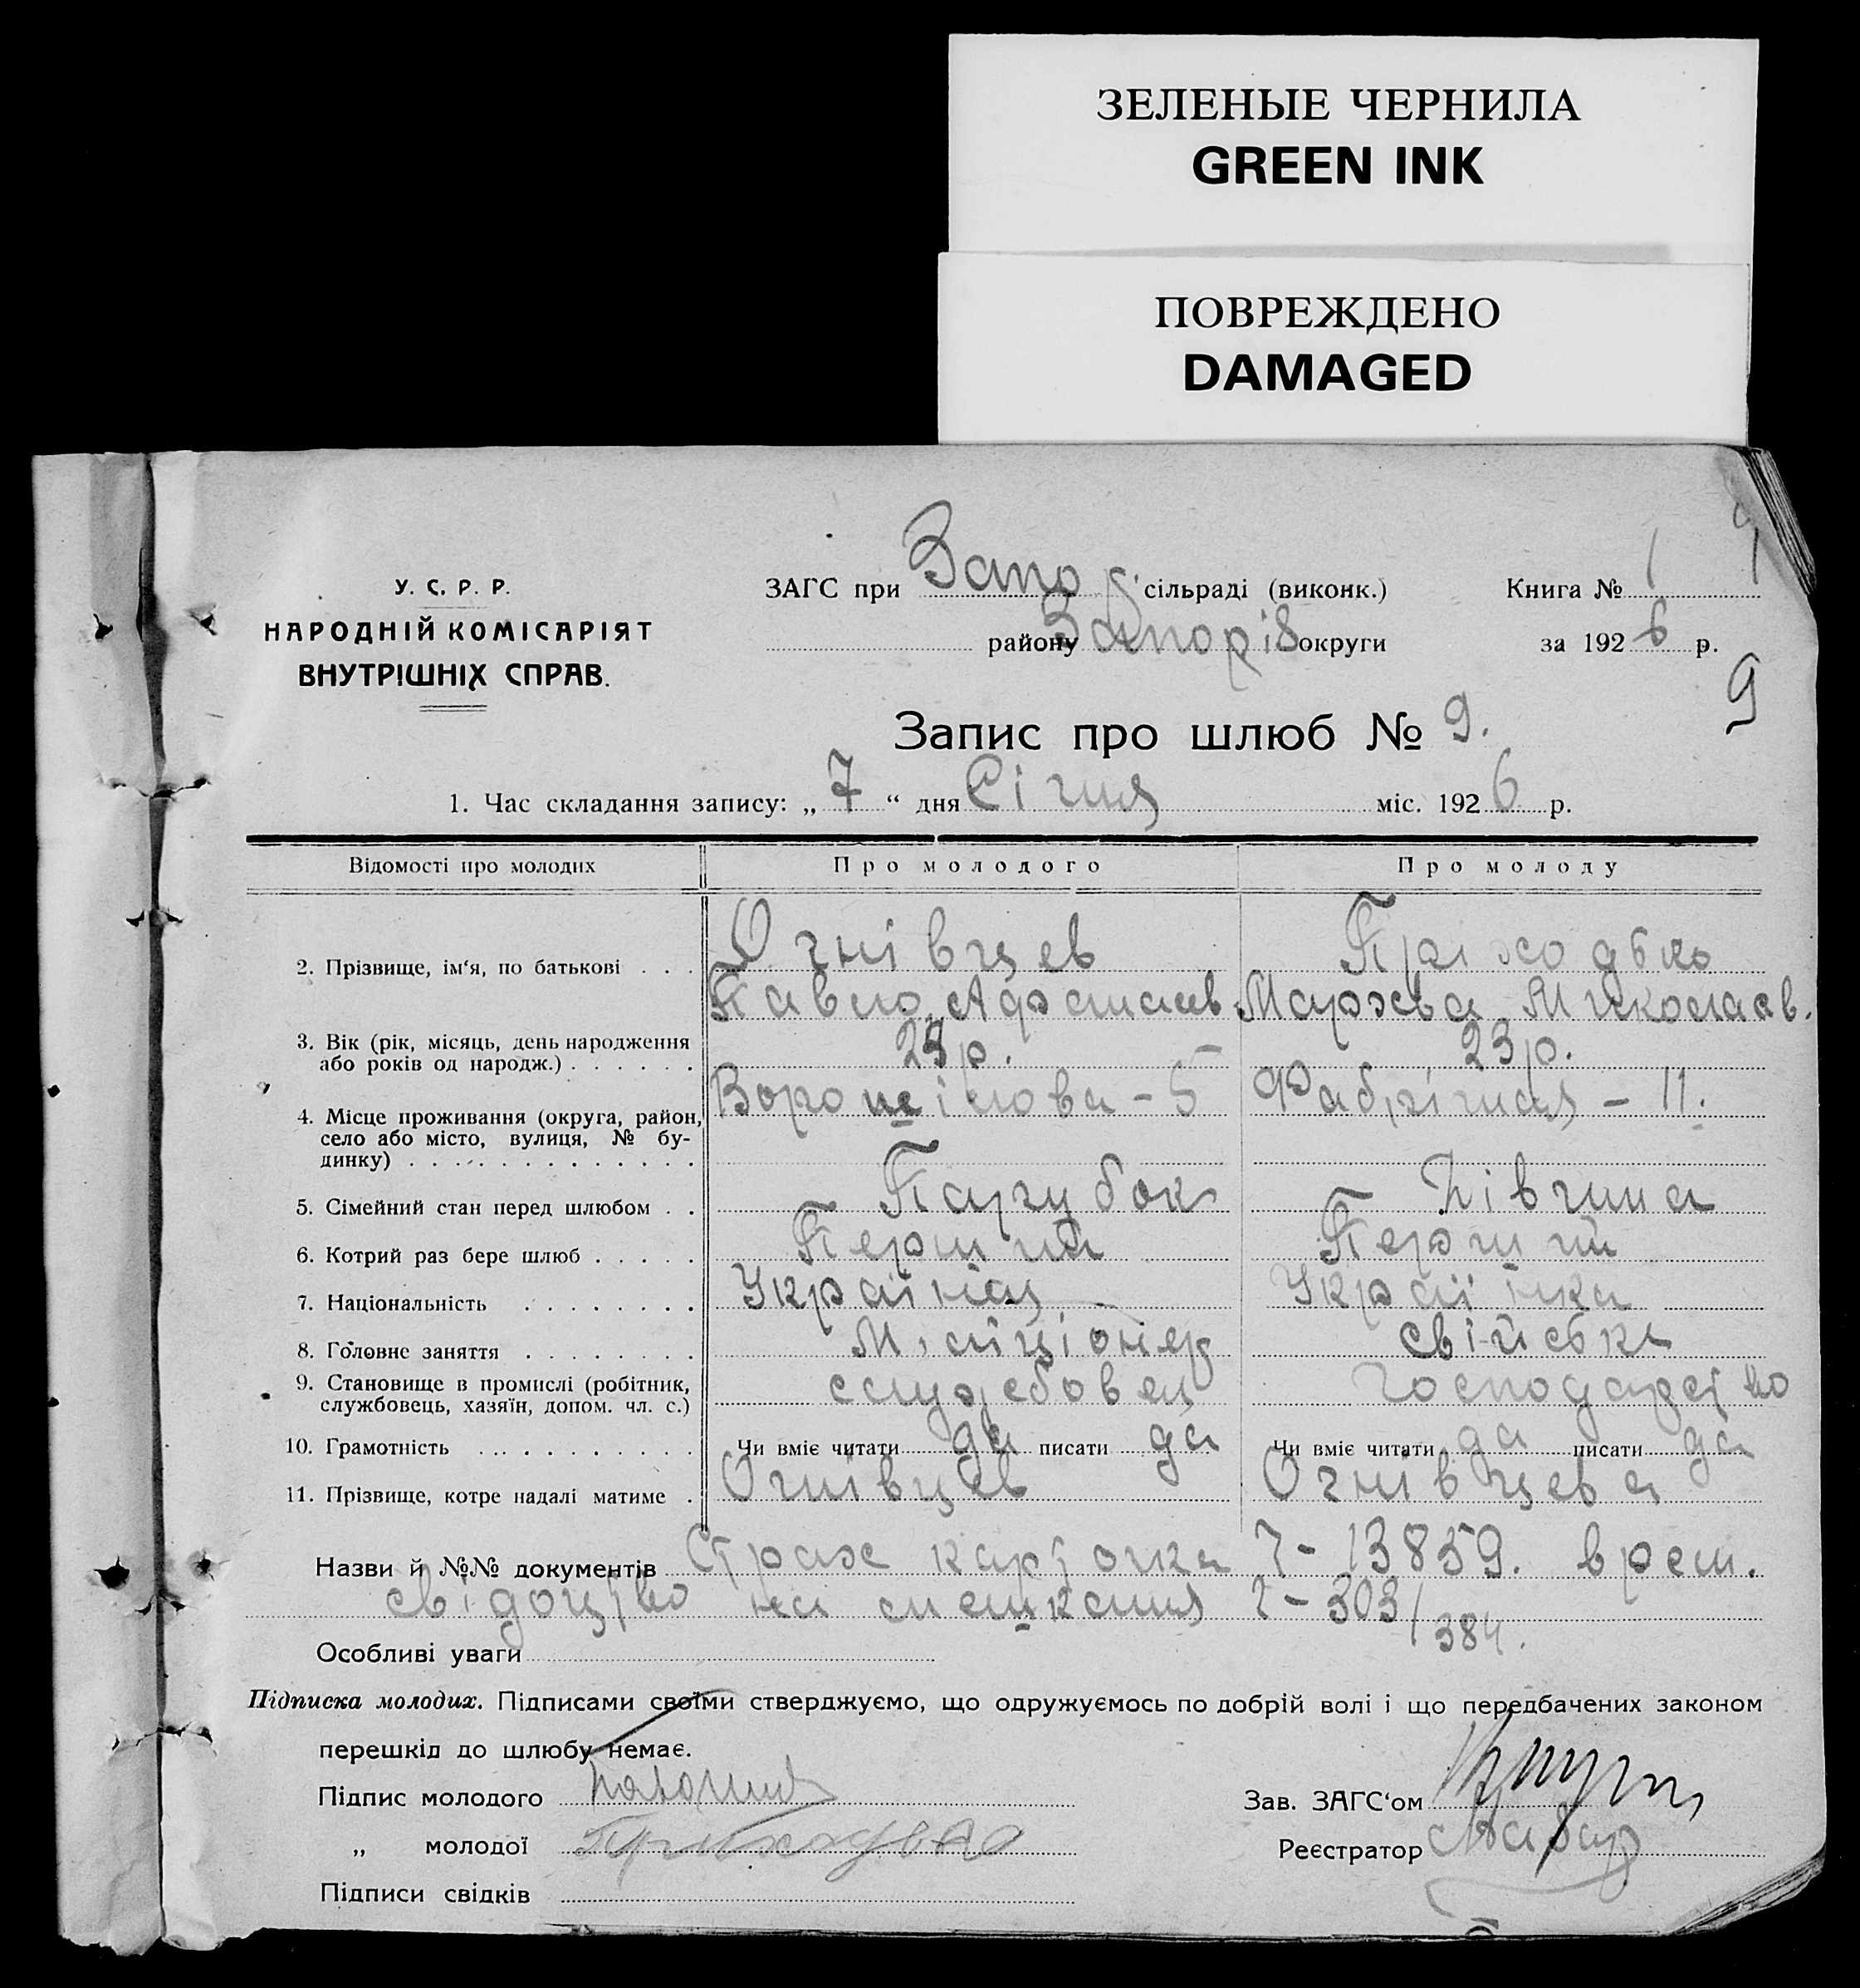 ЗЕЛЕНЫЕ ЧЕРНИЛА
GREEN INK
ПОВРЕЖДЕНО
DAMAGED
У. С. Р. Р.
НАРОДНІЙ КОМІСАРІЯТ
ВНУТРІШНІХ СПРАВ.
ЗАГС при Запо сільраді (виконк.)
району Запоріз округи
Книга № 1
за 1926 р.
9
Запис про шлюб № 9.
1. Час складання запису: „ 7 “ дня Січня міс. 1926 р.
Відомості про молодих Про молодого Про молоду
2. Прізвище, ім‘я, по батькові . . . Огнівцев Приходько
Павло Афанасів Марфа Миколаєв.
3. Вік (рік, місяць, день народження
або років од народж.) . . . . . . 23 р. 23 р.
4. Місце проживання (округа, район,
село або місто, вулиця, № бу-
динку) . . . . . . . . . . . . . Ворошілова – 5 Фабрічная – 11.
5. Сімейний стан перед шлюбом . . Парубок Дівчина
6. Котрий раз бере шлюб . . . . . Перший Перший
7. Національність . . . . . . . . Українец Українка
8. Головне заняття . . . . . . . . Міліціонер свійське
9. Становище в промислі (робітник,
службовець, хазяїн, допом. чл. с.) служебовец господарство
10. Грамотність . . . . . . . . . . . Чи вміє читати да писати да Чи вміє читати да писати да
11. Прізвище, котре надалі матиме . Огнівцев Огнівцева
Назви й №№ документів Страх карточка Ч – 13859. врем.
свідоцтво на мешкання Ч – 303/384.
Особливі уваги
Підписка молодих. Підписами своїми стверджуємо, що одружуємось по добрій волі і що передбачених законом
перешкід до шлюбу немає.
Підпис молодого
„ молодої Приходько
Підписи свідків
Зав. ЗАГС‘ом
Реєстратор